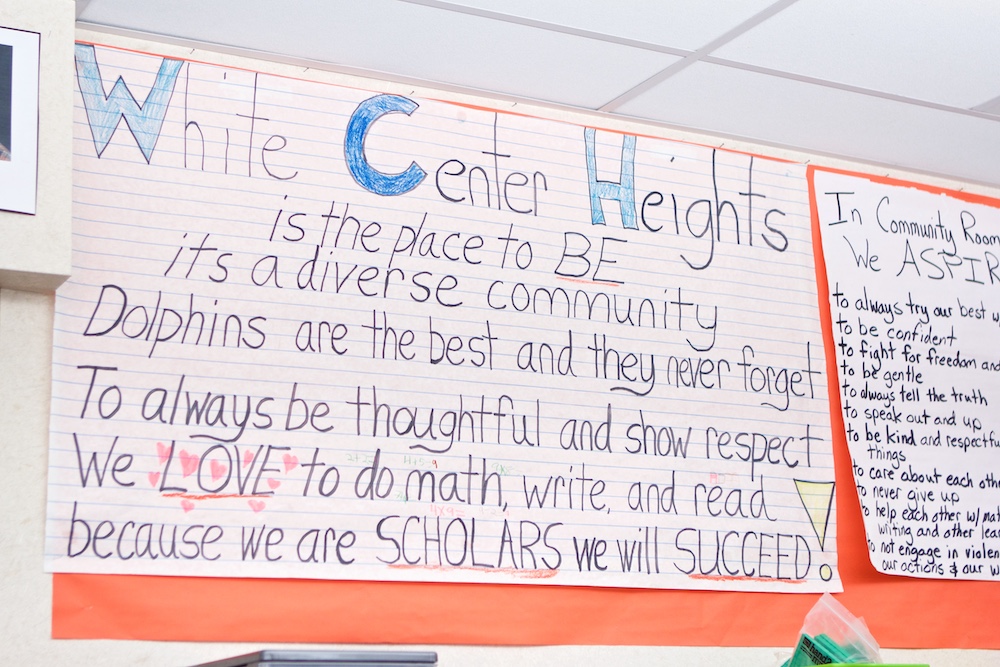 White Center Heights
is the place to BE
it's a diverse community
Dolphins are the best and they never forget
To always be thoughtful and show respect
We LOVE to do math, write, and read
because we are SCHOLARS we will SUCCEED!
In Community Room
We ASPIR
to always try our best w
to be confident
to fight for freedom and
to be gentle
to always tell the truth
to speak out and up
to be kind and respectfu
things
to care about each othe
to never give up
to help each other w/ mat
writing and other lear
to not engage in violen
our actions & our w